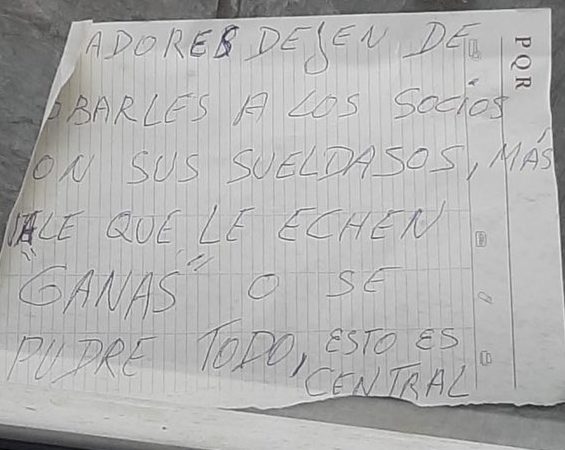 ADORES DEJEN DE
OBARLES A LOS SOCIOS
ON SUS SUELDASOS, MÁS
ALE QUE LE ECHEN
"GANAS" O SE
PUDRE TODO, ESTO ES
CENTRAL
PQR